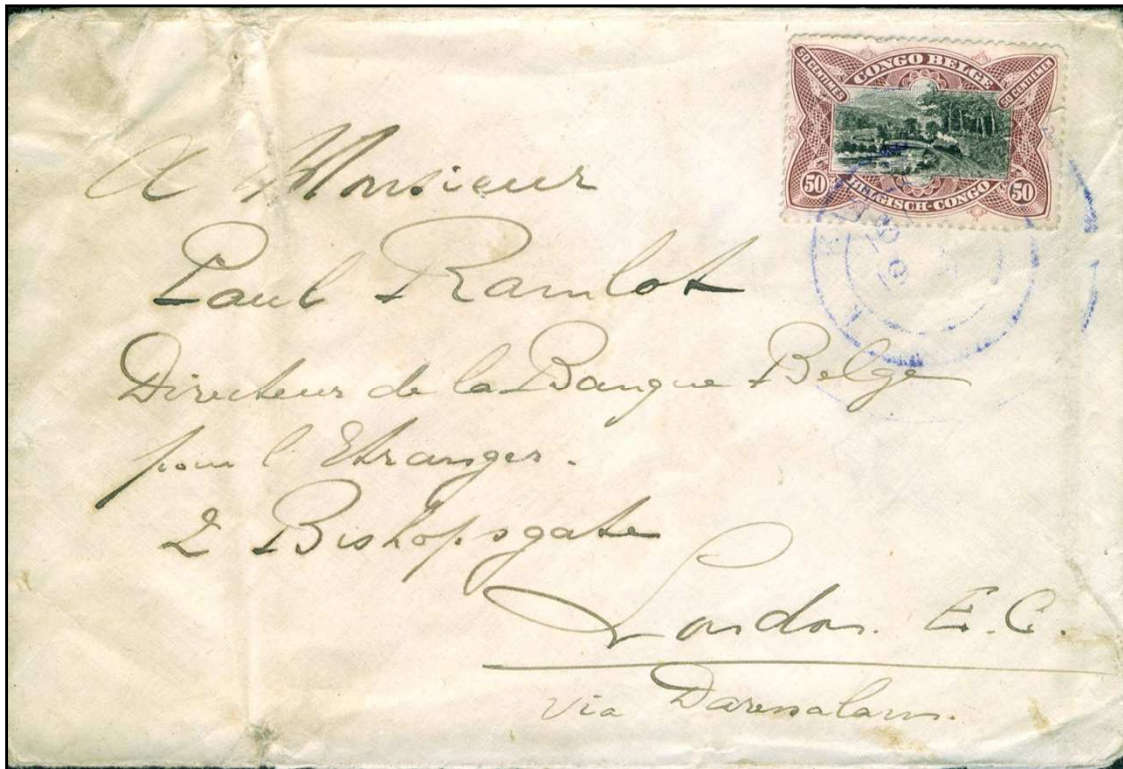 50 CENTIMES
CONGO BELGE
50 CENTIEMEN
50
BELGISCH-CONGO
50
A Monsieur
Paul Ramlot
Directeur de la Banque Belge
pour l'Etranger.
2 Bishopsgate
London. E.C.
via Daressalam.